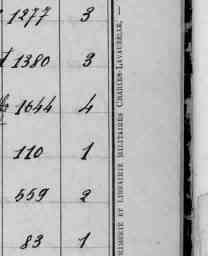 1277 3
1380 3
1644 4
110 1
559 2
83 1
PRIMERIE ET LIBRAIRIE MILITAIRES CHARLES-LAVAUZELLE. —